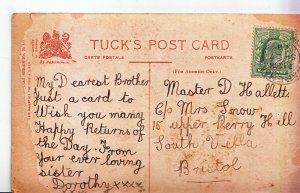 TUCK'S POST CARD
CARTE POSTALE
POSTKARTE
(For Address Only)
My Dearest Brother
Just a card to
Wish you many
Happy Returns of
the Day. From
your ever loving
sister
Dorothy xxxx
Master D Hallett
c/o Mrs Snow
15 upper Perry Hill
South Ville
Bristol